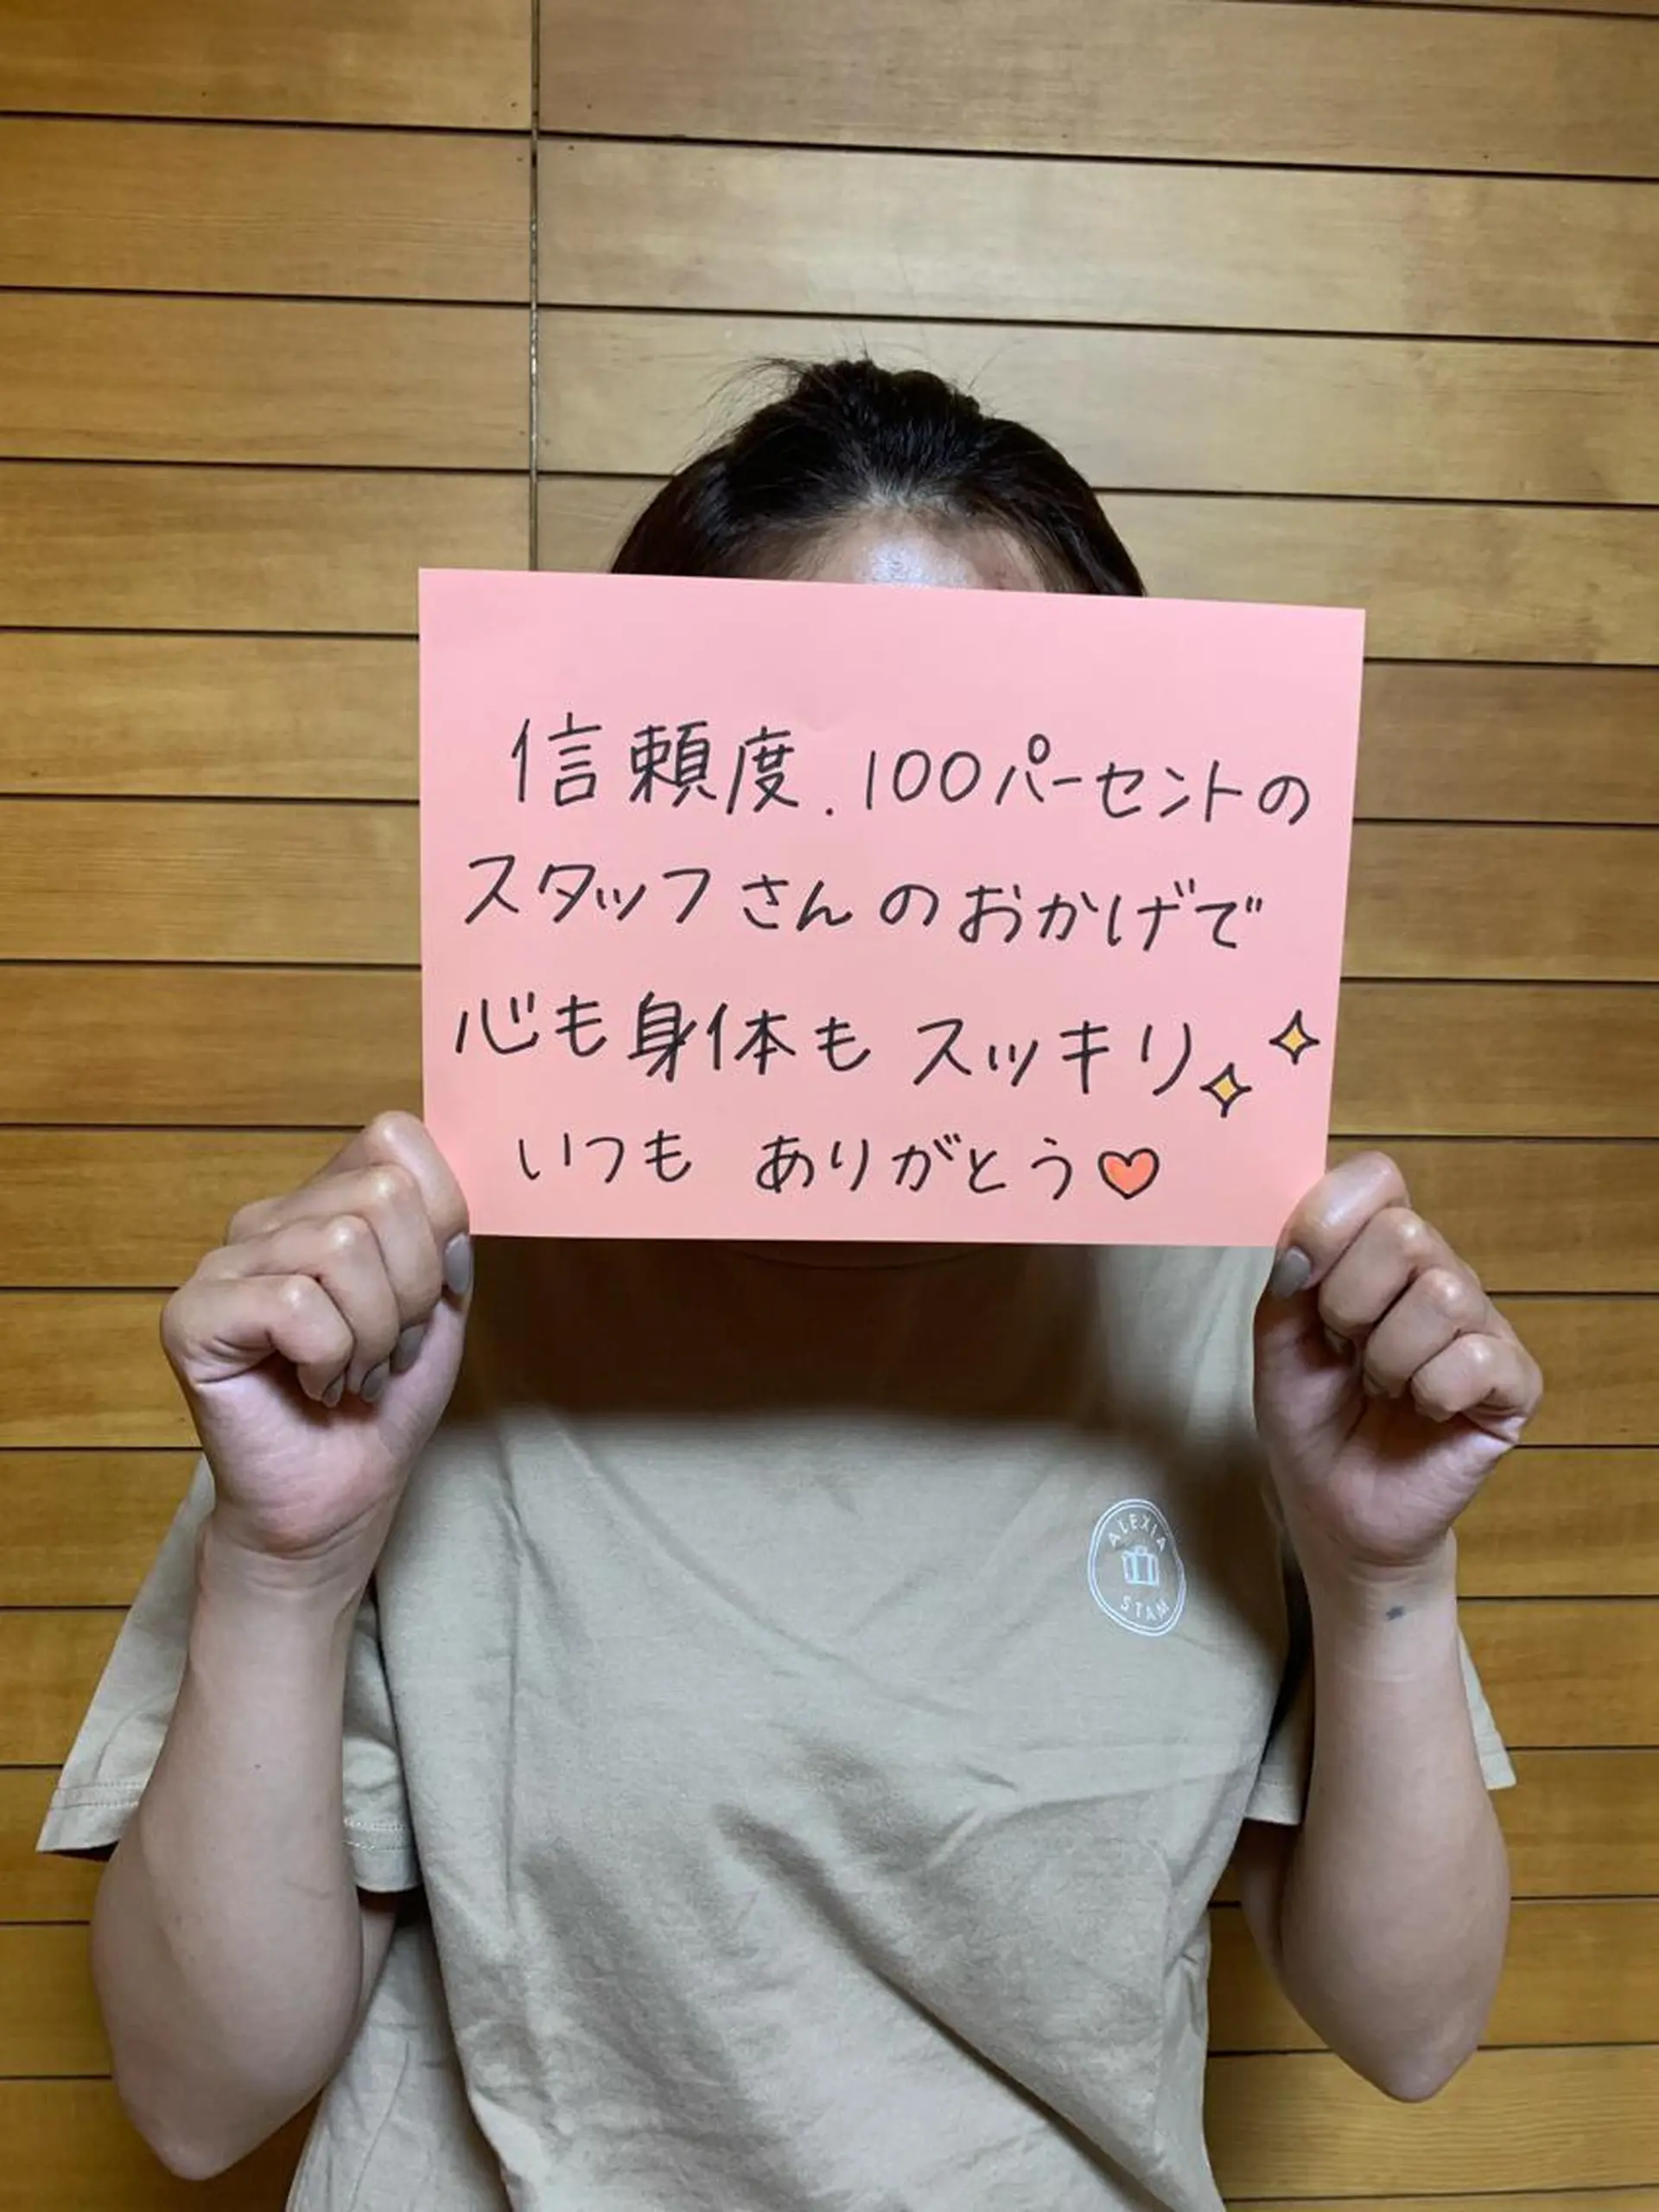 信頼度.100パーセントの
スタッフさんのおかげで
心も身体もスッキリ
いつもありがとう♡
ALEXIA
STAM